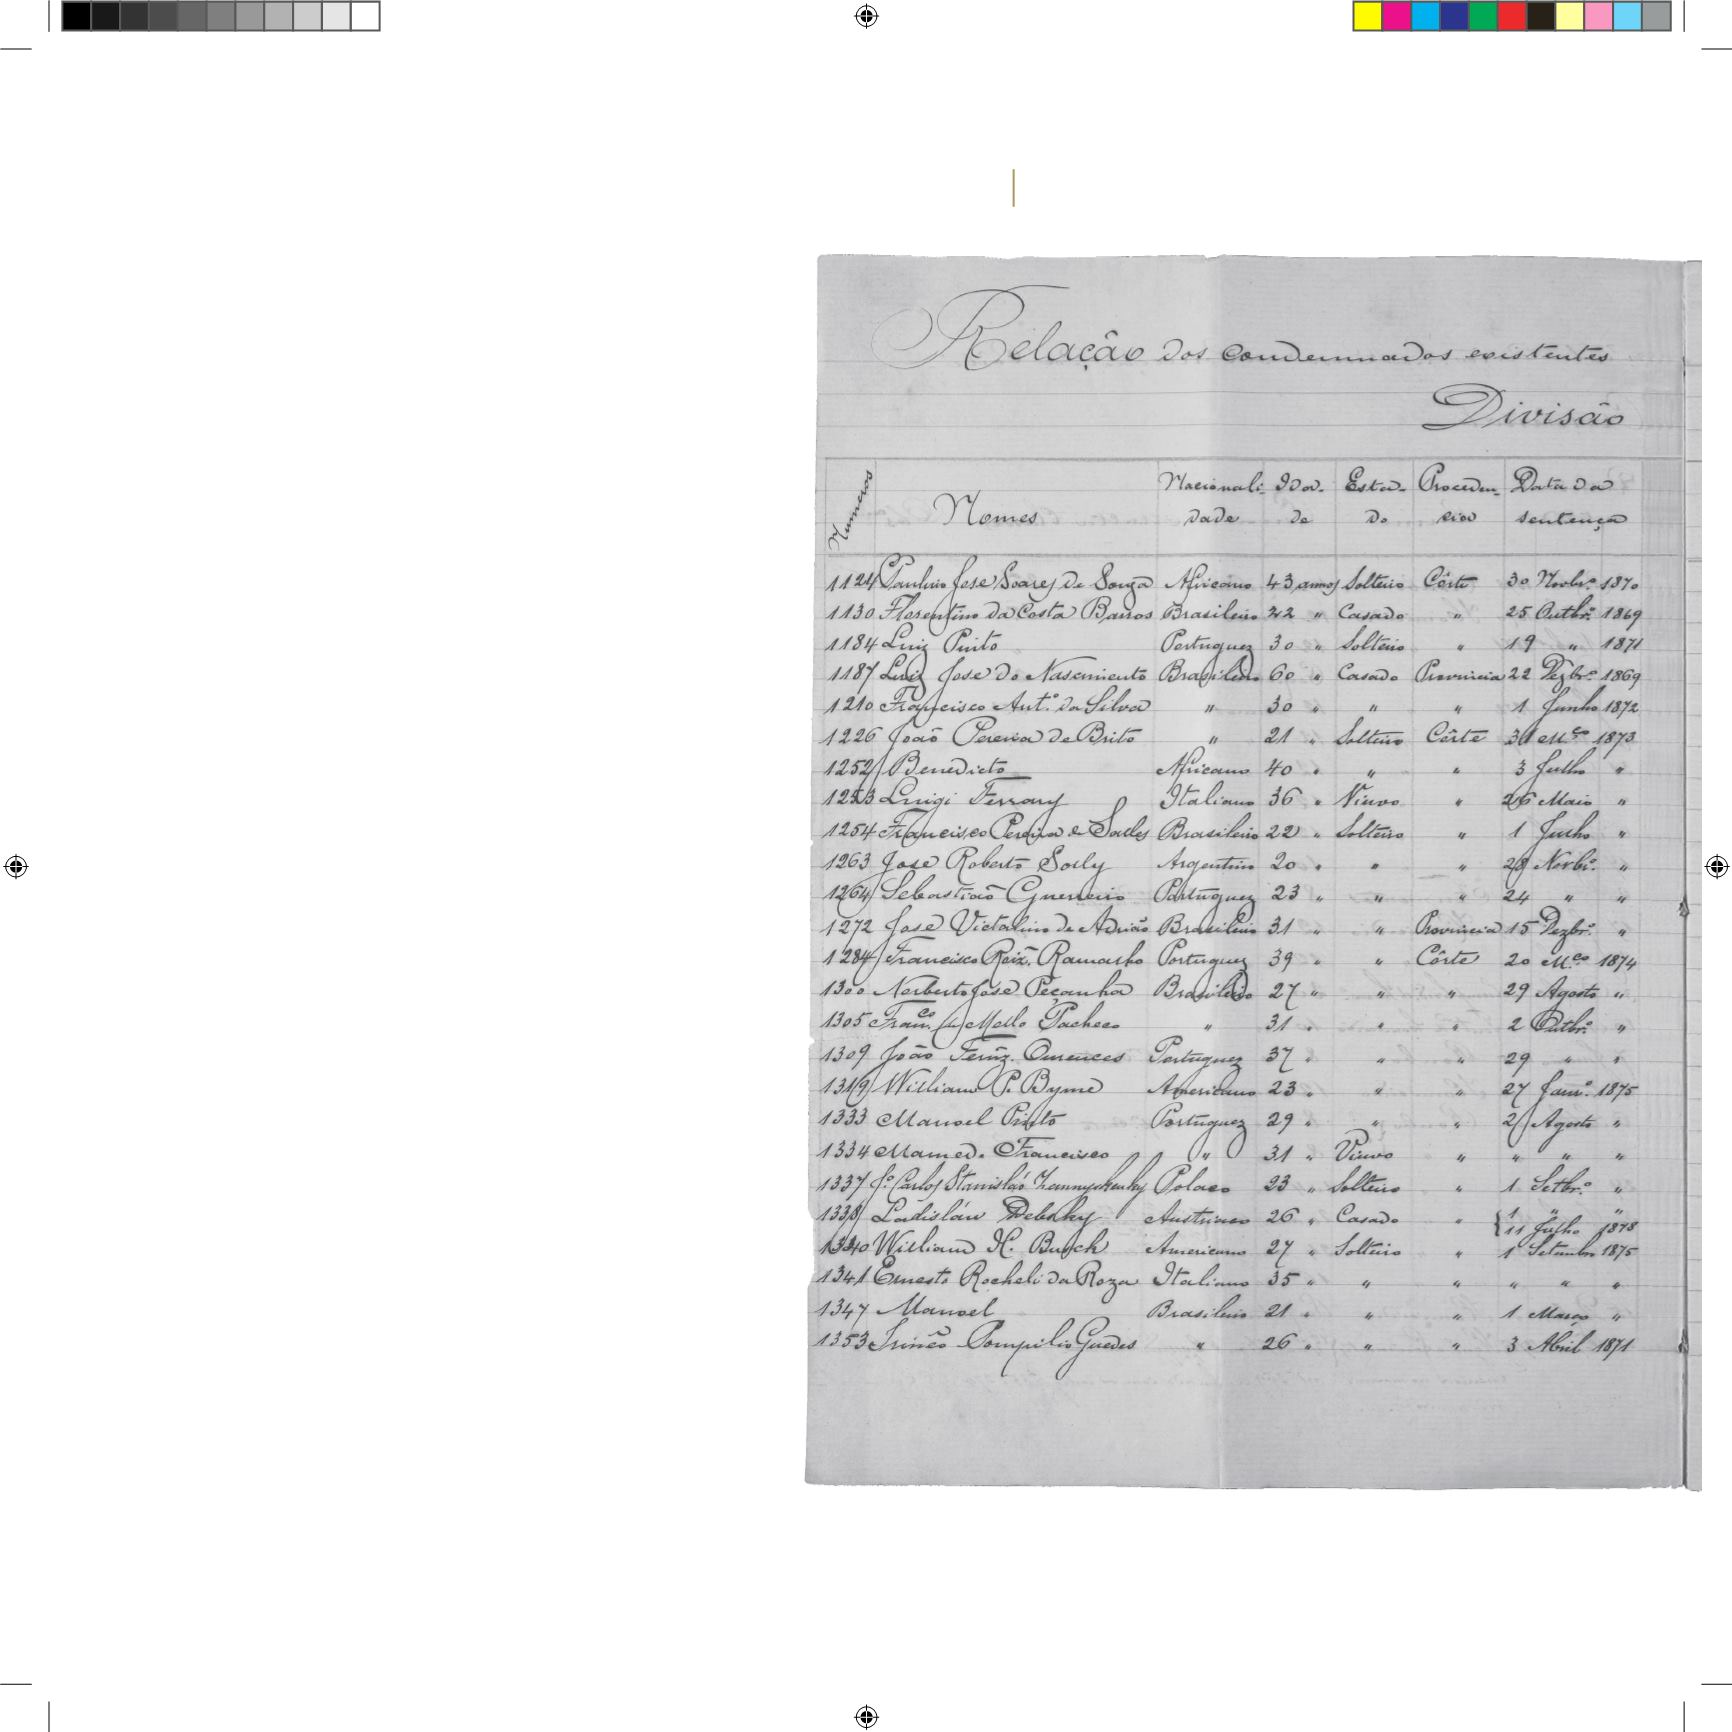 Relação dos condemnados existentes
Divisão
Numeros Nomes Nacionali- Ida- Esta- Proceden- Data da
dade de do cia sentença
1124 Paulino José Soares de Souza Africano 43 annos Solteiro Côrte 30 Novbrº 1870
1130 Florentino da Costa Barros Brasileiro 22 " Casado " 25 Outbrº 1869
1184 Luiz Pinto Portuguez 30 " Solteiro " 19 " 1871
1187 Luiz José do Nascimento Brasileiro 60 " Casado Provincia 22 Dezbrº 1869
1210 Francisco Antº da Silva " 30 " " " 1 Junho 1872
1226 João Pereira de Brito " 21 " Solteiro Côrte 31 Mço 1873
1252 Benedicto Africano 40 " " " 3 Julho "
1253 Luigi Ferrary Italiano 36 " Viuvo " 26 Maio "
1254 Francisco Pereira de Salles Brasileiro 22 " Solteiro " 1 Julho "
1263 José Roberto Argentino 20 " " " 28 Novbrº "
1264 Sebastião Guerreiro Portuguez 23 " " " 24 " "
1272 José Victalino de Adrião Brasileiro 31 " " Provincia 15 Dezbrº "
1284 Francisco Roiz. Ramalho Portuguez 39 " " Côrte 20 Mço 1874
1300 Norberto José Peçanha Brasileiro 27 " " " 29 Agosto "
1305 Franco de Mello Pacheco " 31 " " " 2 Outbrº "
1309 João Fernz. Ourences Portuguez 37 " " " 29 " "
1319 William P. Byrne Americano 23 " " " 27 Janrº 1875
1333 Manoel Pinto Portuguez 29 " " " 2 Agosto "
1334 Mamede Francisco " 31 " Viuvo " " " "
1337 Jº Carlos Stanisláo Polaco 23 " Solteiro " 1 Setbrº "
1338 Ladisláu Austriaco 26 " Casado " { 1 " "
11 Julho 1878
1340 William H. Busch Americano 27 " Solteiro " 1 Setembro 1875
1341 Ernesto Rocheli da Roza Italiano 35 " " " " " "
1347 Manoel Brasileiro 21 " " " 1 Março "
1353 Irinêo Pompilio Guedes " 26 " " " 3 Abril 1871